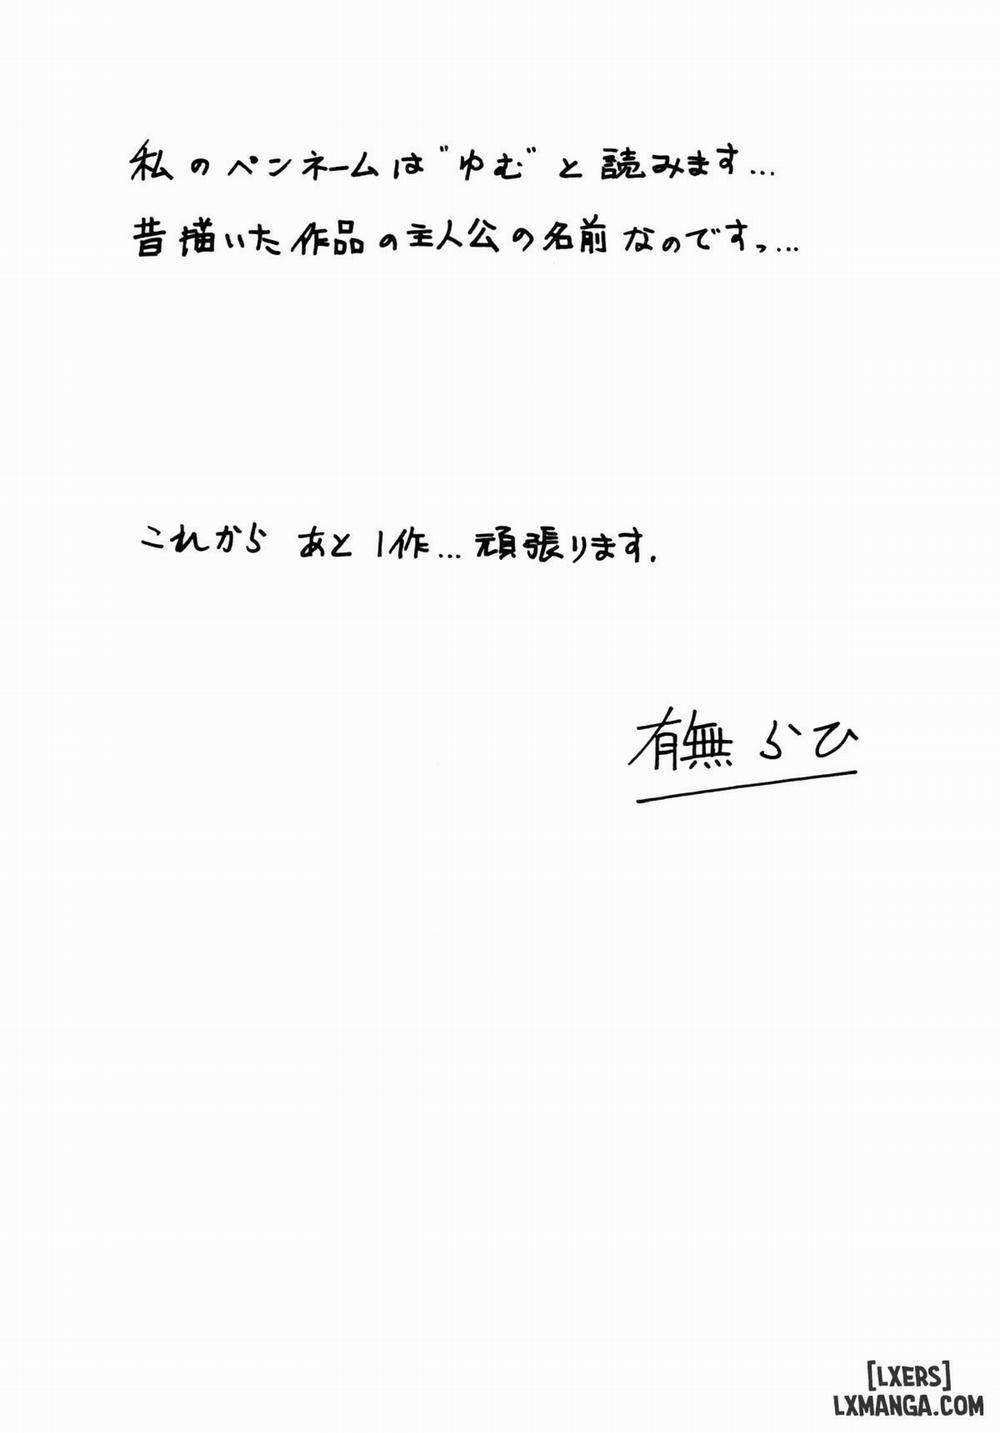 私のペンネームは"ゆむ"と読みます…
昔描いた作品の主人公の名前なのですっ…
これから あと1作…頑張ります.
有無らひ
[LXERS]
LXMANGA.COM